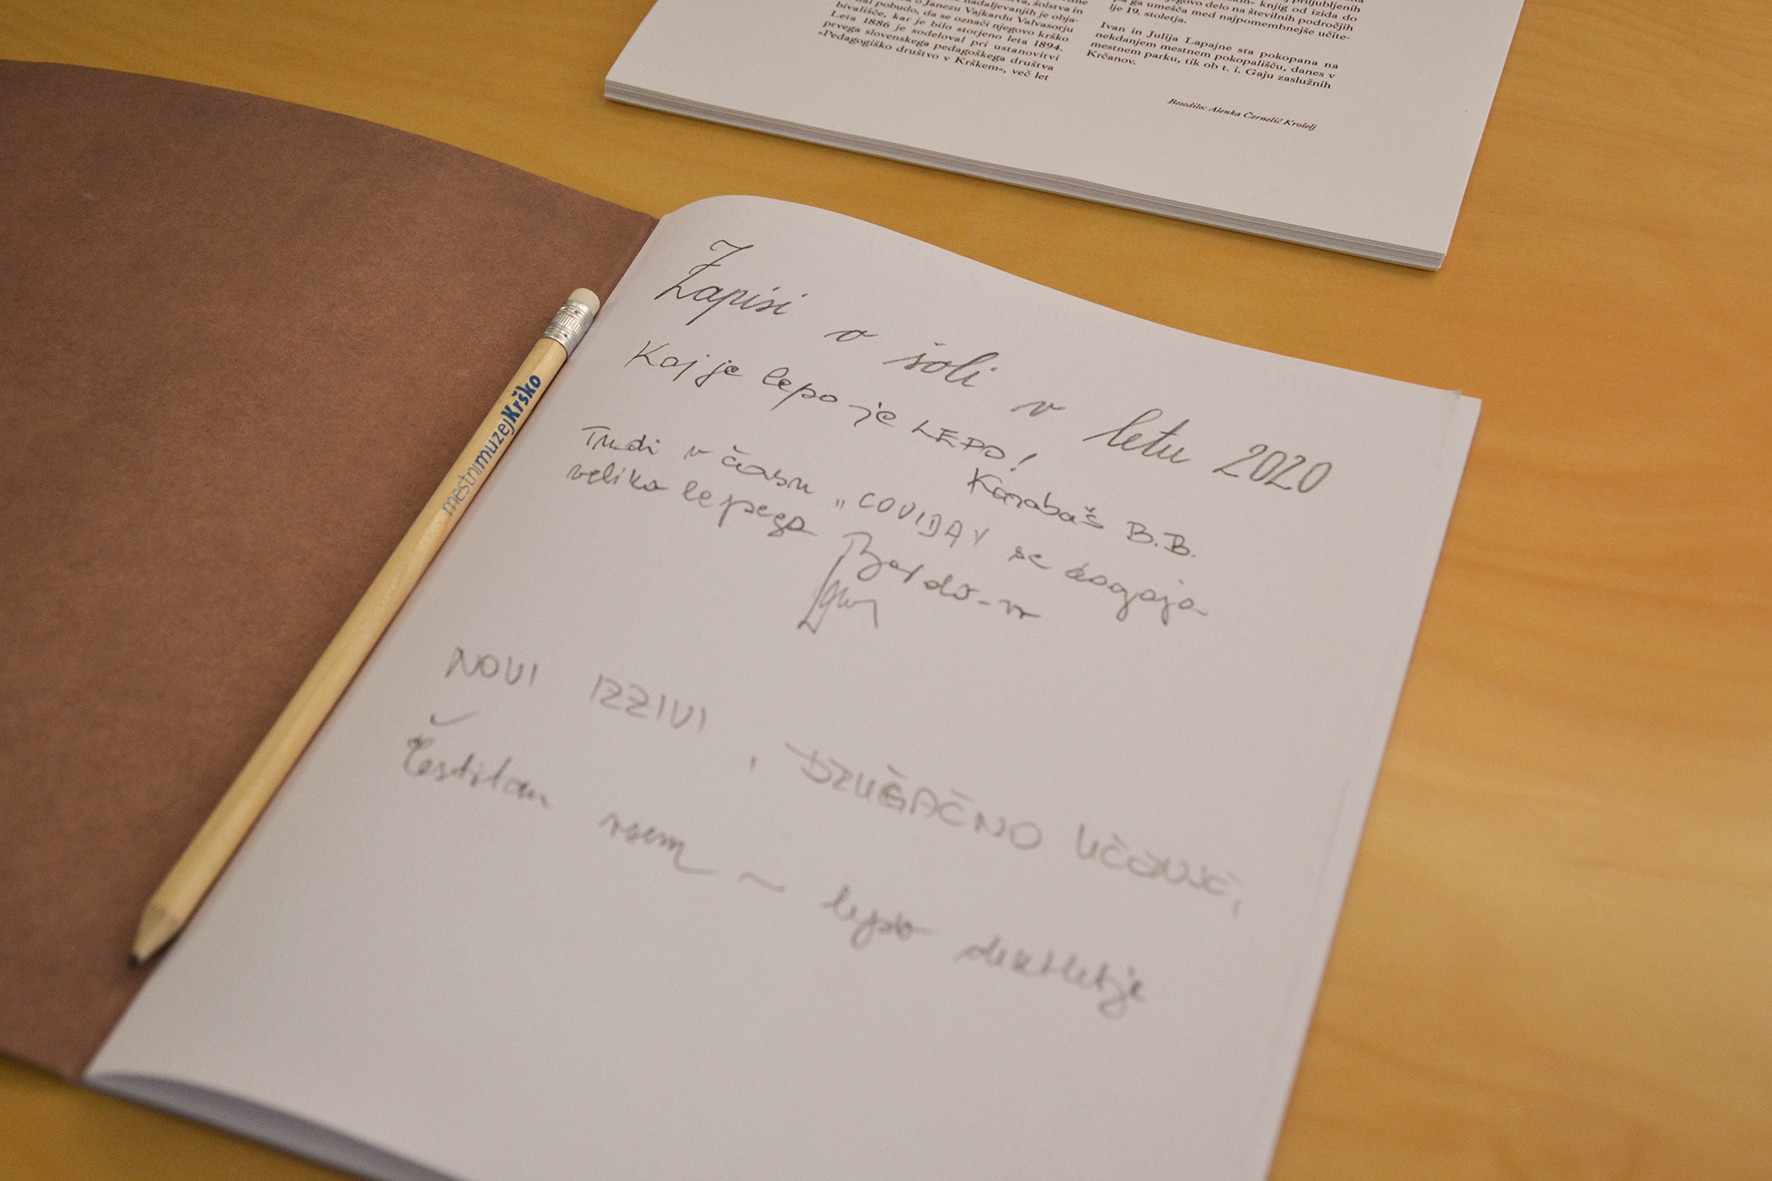 nadaljevanjih je obja-
o Janezu Vajkardu Valvasorju
pobudo, da se označi njegovo krško
bivališče, kar je bilo storjeno leta 1894.
Leta 1886 je sodeloval pri ustanovitvi
prvega slovenskega pedagoškega društva
»Pedagogiško društvo v Krškem«, več let
priljubljenih
knjig od izida do
delo na številnih področjih
pa ga umešča med najpomembnejše učite-
lje 19. stoletja.
Ivan in Julija Lapajne sta pokopana na
nekdanjem mestnem pokopališču, danes v
mestnem parku, tik ob t. i. Gaju zaslužnih
Krčanov.
Besedilo: Alenka Černelič Krošelj
mestnimuzejKrško
Zapisi v šoli v letu 2020
Kaj je lepo je LEPO!
B.B.
Tudi v času "COVIDA" se dogaja
veliko lepega
NOVI IZZIVI, DRUGAČNO UČENJE,
Čestitam vsem ~ lepo doživetje